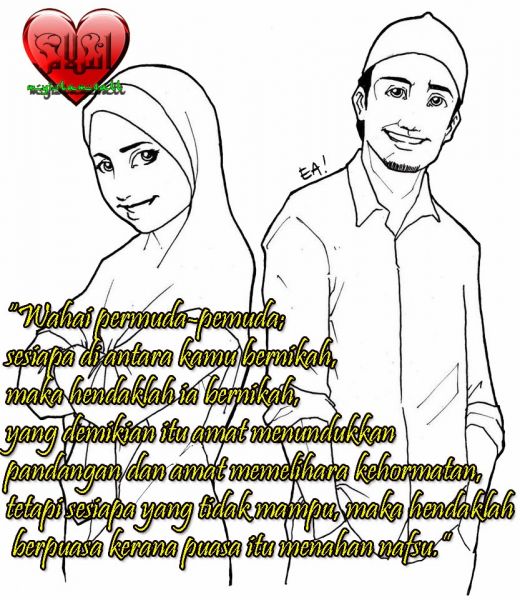 EA!
"Wahai permuda-pemuda;
sesiapa di antara kamu bernikah,
maka hendaklah ia bernikah,
yang demikian itu amat menundukkan
pandangan dan amat memelihara kehormatan,
tetapi sesiapa yang tidak mampu, maka hendaklah
berpuasa kerana puasa itu menahan nafsu."